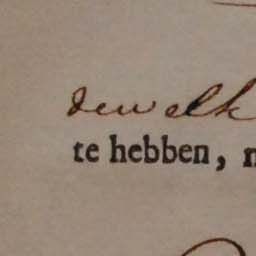 dewelk
te hebben,